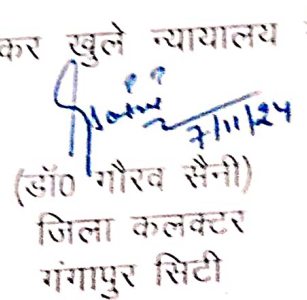 कर खुले न्यायालय
7/11/24
(डॉ0 गौरव सैनी)
जिला कलक्टर
गंगापुर सिटी